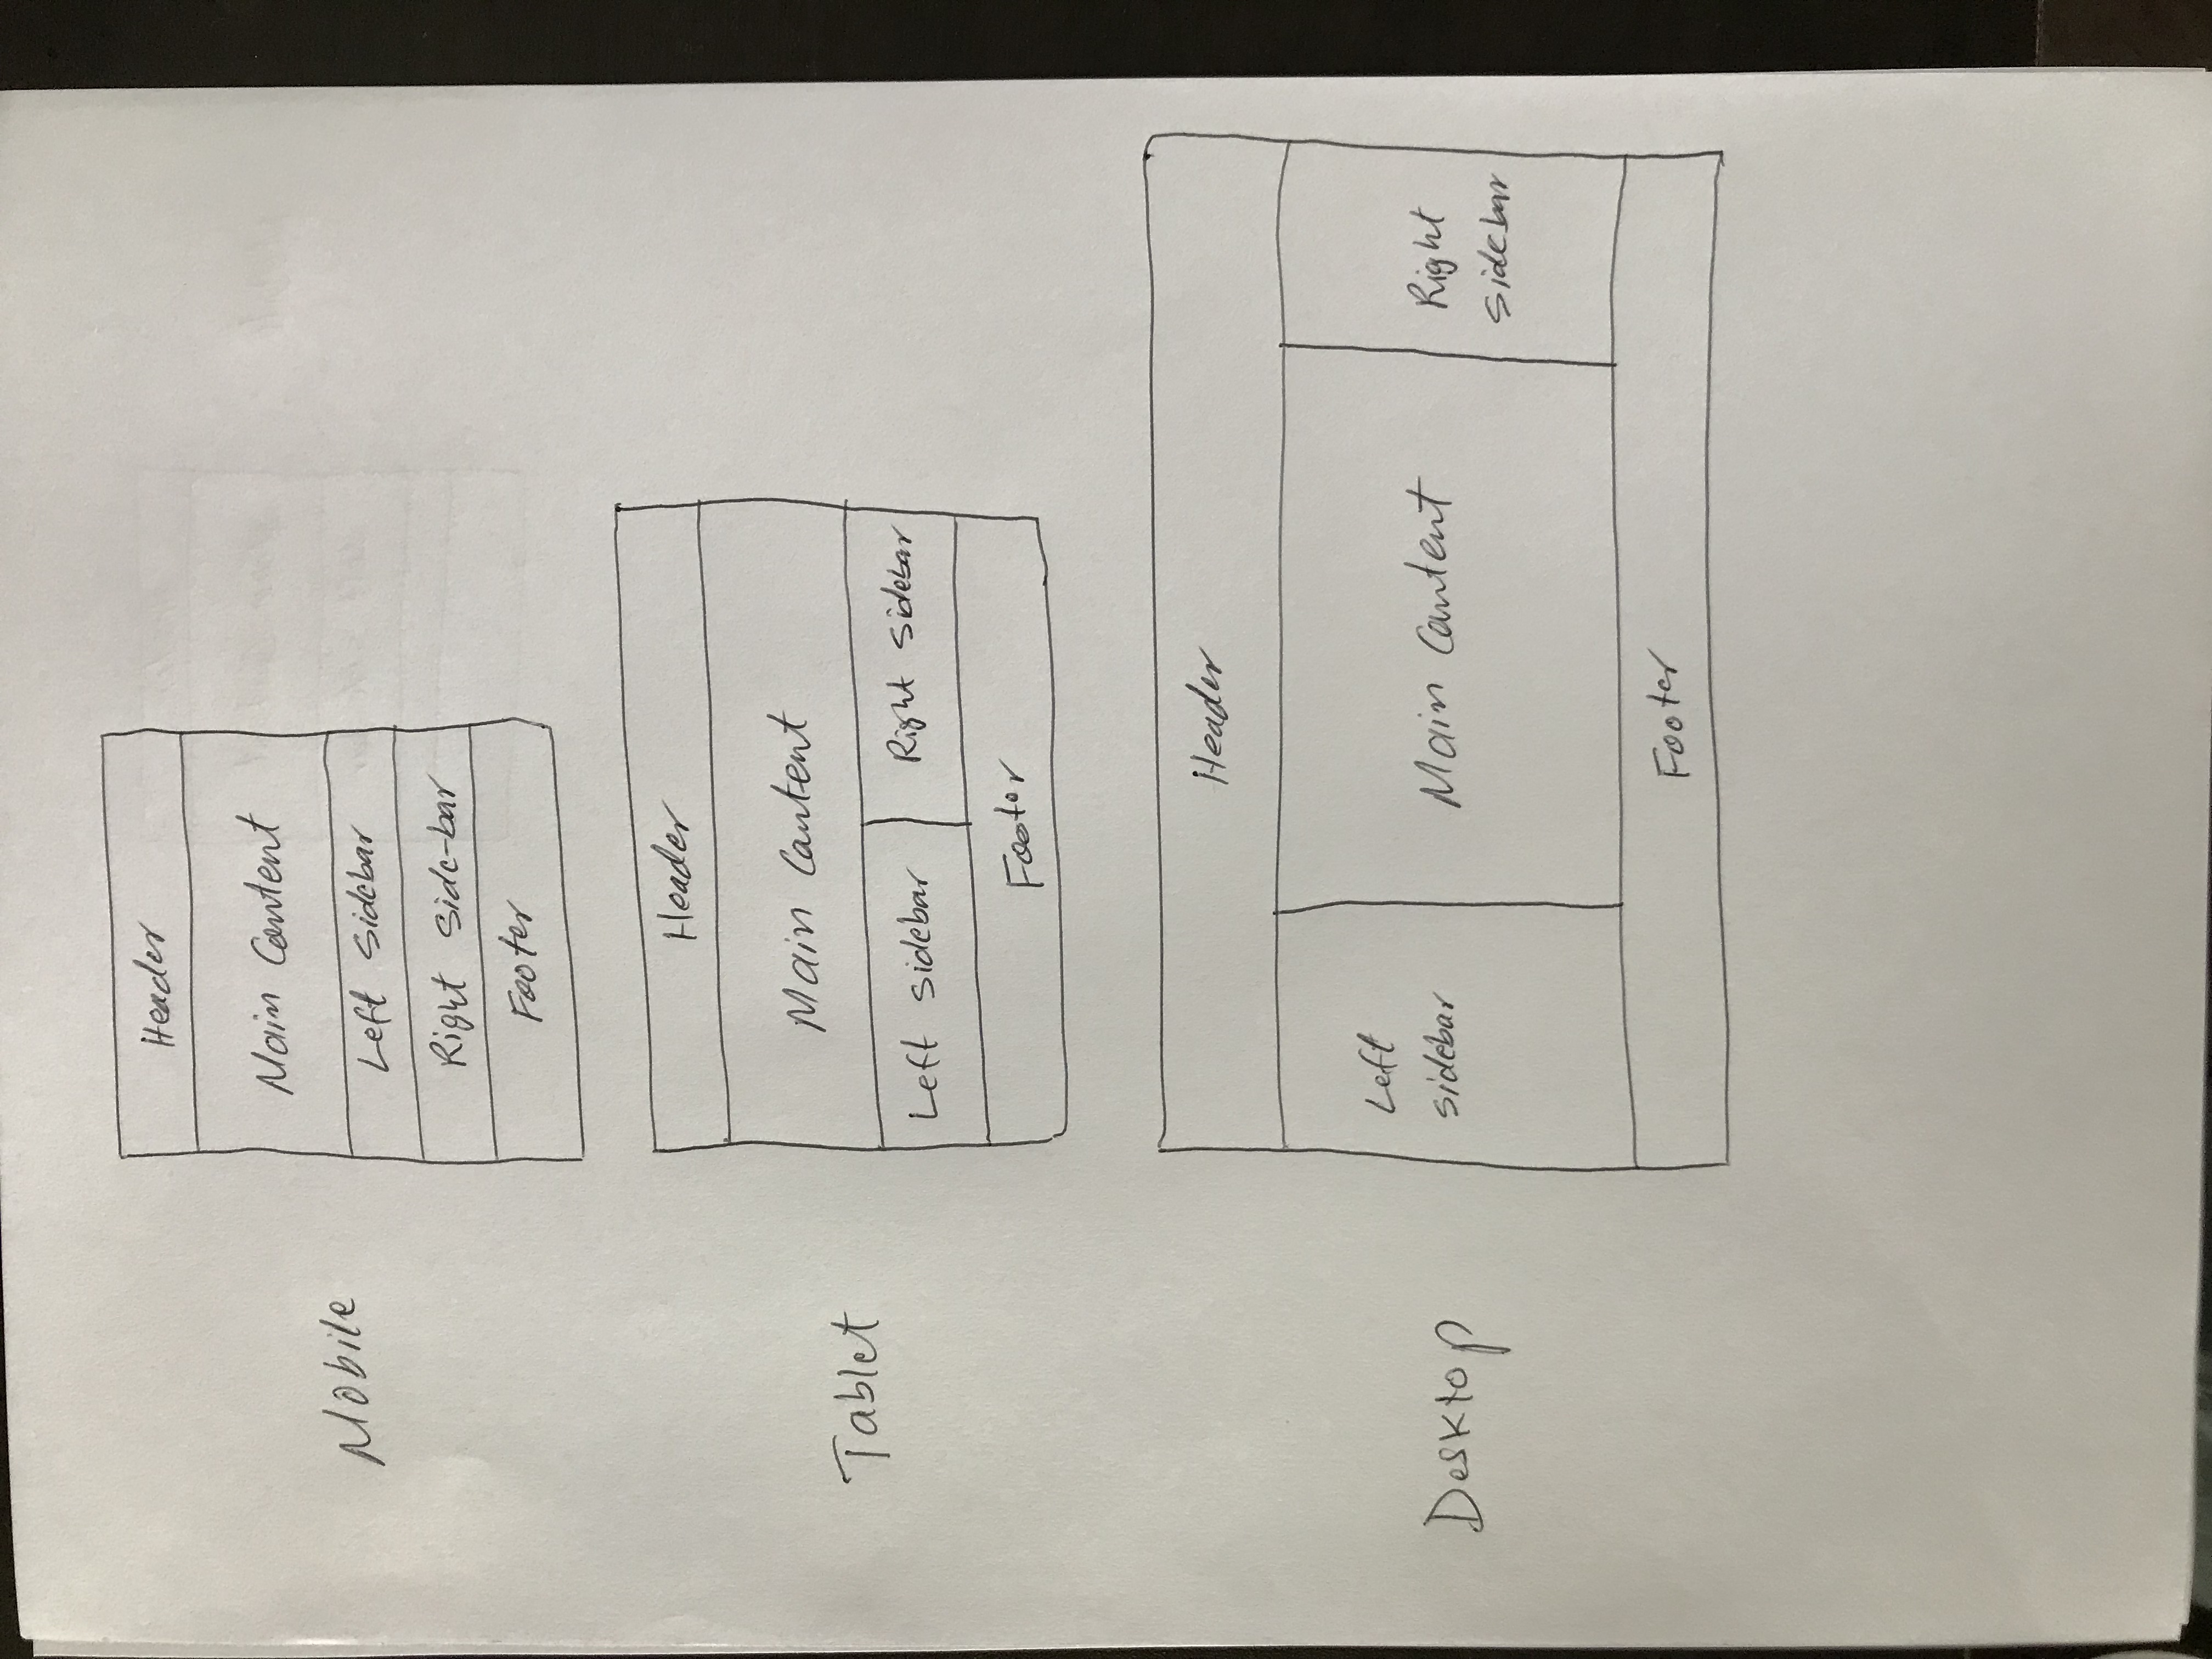 Mobile
Header
Main Content
Left Sidebar
Right Side-bar
Footer
Tablet
Header
Main Content
Left Sidebar
Right Sidebar
Footer
Desktop
Header
Left
Sidebar
Main Content
Right
Sidebar
Footer